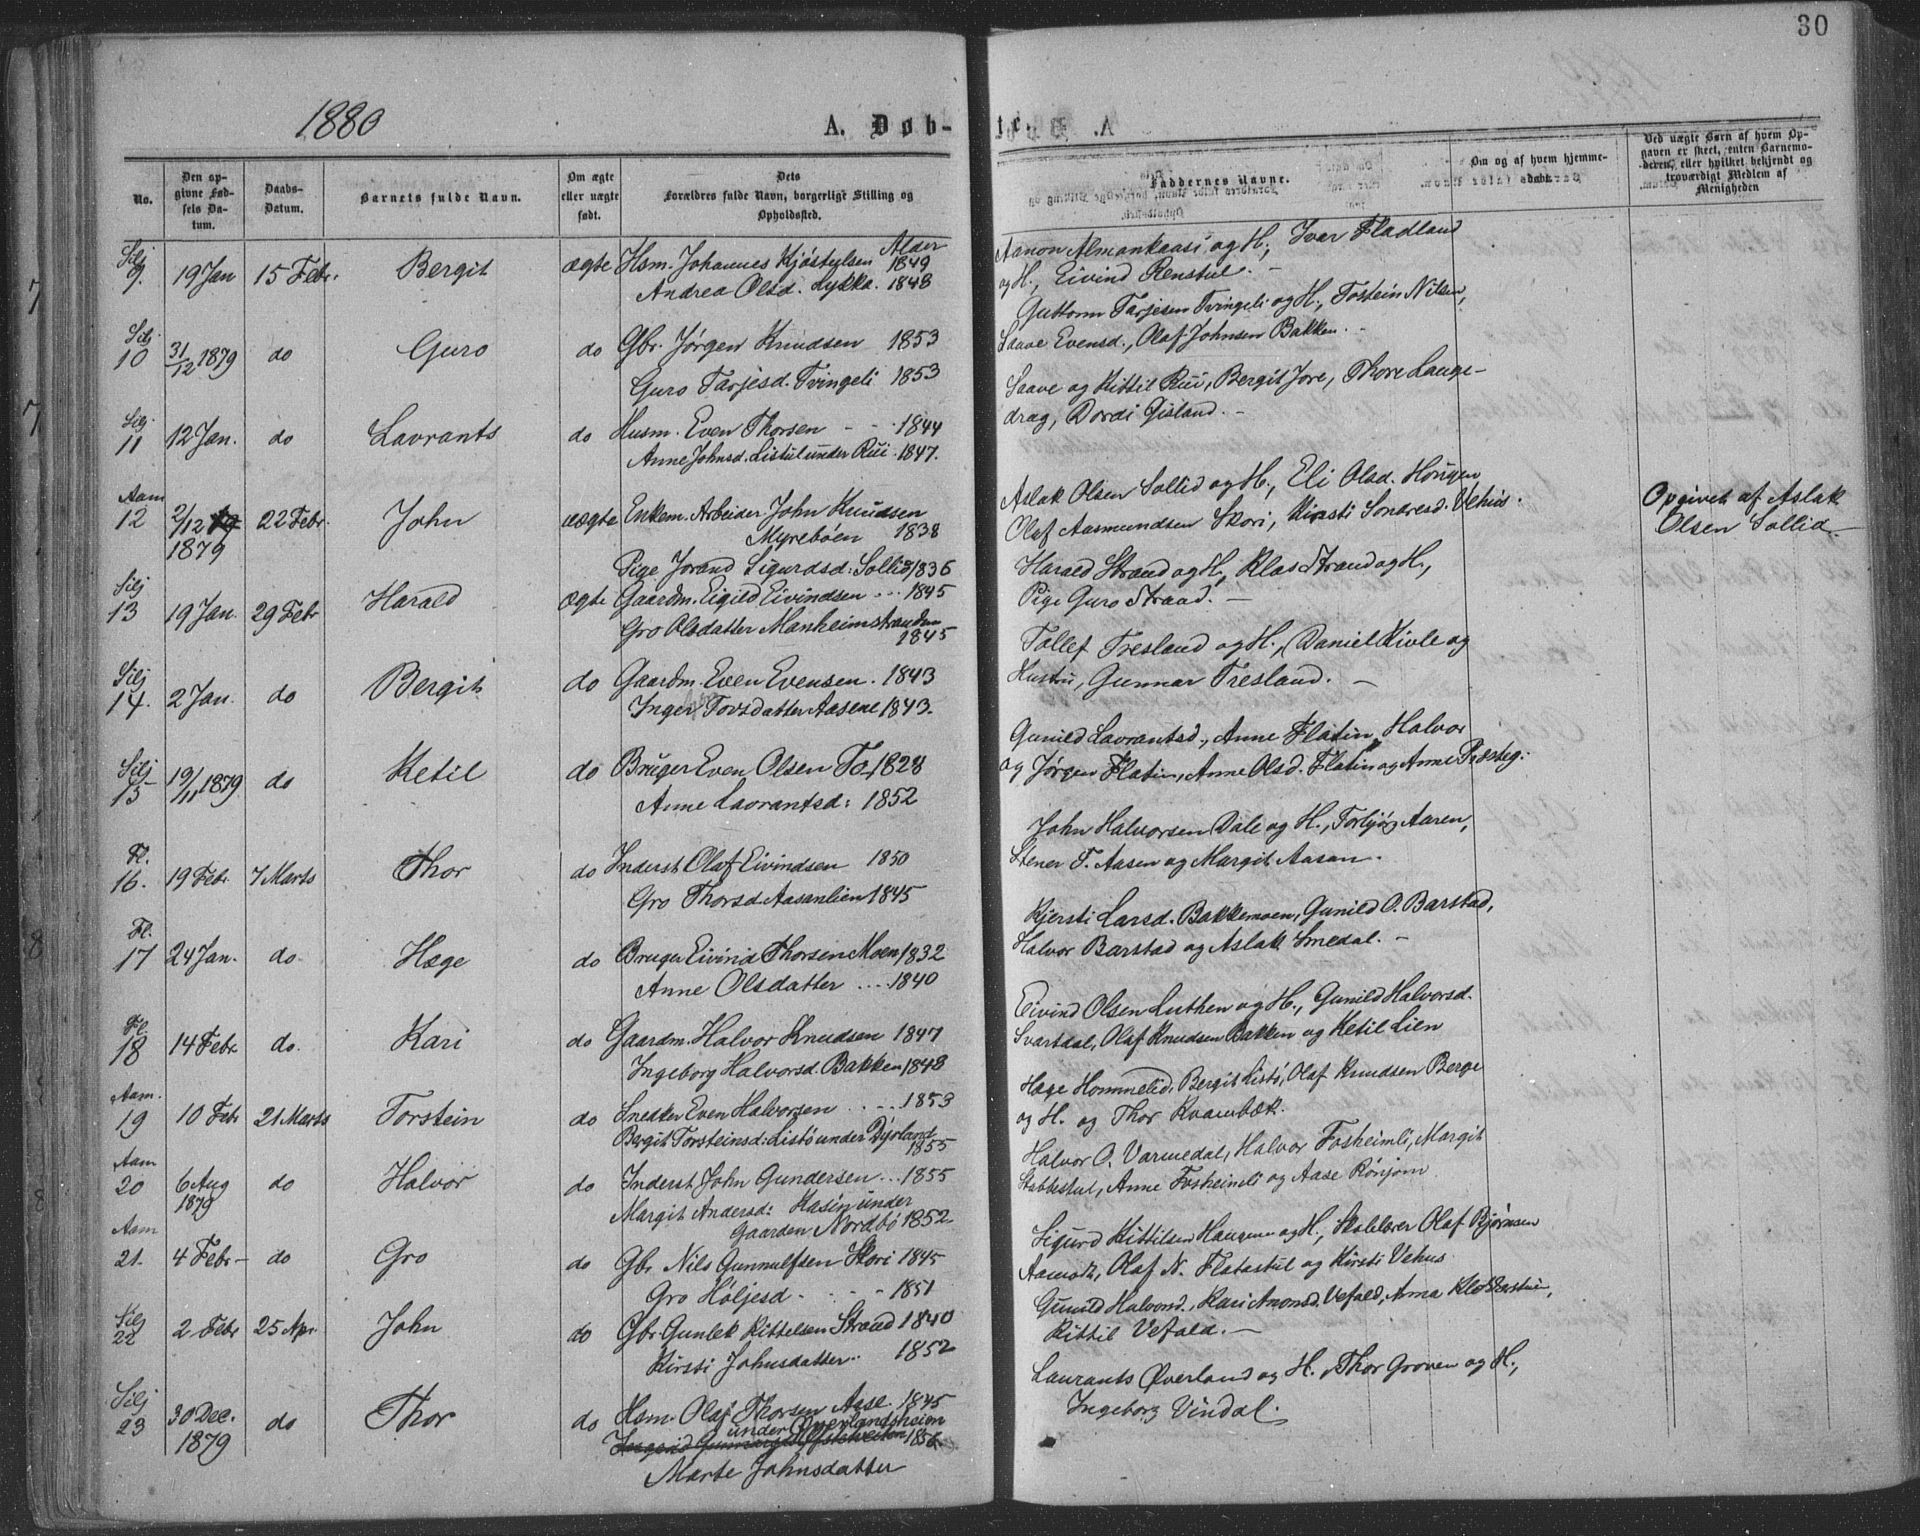 30
1880
A. Døb-
te.
No.
Den op-
givne Fød-
sels Da-
tum.
Daabs-
Datum.
Barnets fulde Navn.
Om ægte
eller uægte
født.
Dets
Forældres fulde Navn, borgerlige Stilling og
Opholdssted.
Faddernes Navne.
Om og af hvem hjemme-
døbt.
Ved uægte Børn af hvem Op-
gaven er skeet, enten Barnemo-
deren, eller hvilket bekjendt og
troværdigt Medlem af
Menigheden
Silj
9. 19 Jan 15 Febr. Bergit ægte Hsm. Johannes Kjøstylsen Alder 1849
Andrea Olsd. Lykkja. 1848
Aanon Almankaasi og H., Ivar Fladland
og H., Eivind Renstul. -
Silj.
10 31/12 1879 do Guro do Gbr. Jørgen Knudsen 1853
Guro Tarjesd. Tvingeli 1853
Guttorm Tarjesen Tvingeli og H., Tostein Nilsen,
Saave Evensd., Olaf Johnsen Bakken. -
Silj.
11 12 Jan. do Lavrants do Husm. Even Thorsen - - 1844
Anne Johnsd. Listul under Rui. 1847.
Saave og Kittil Rui, Bergit Jore, Thore Lauge-
drag, Dordi Gisland. -
Aam
12 2/12 79 1879 22 Febr. John uægte Enkem. Arbeider John Knudsen
Myrebøen 1838
Pige Jorand Sigurdsd: Sollid 1836
Aslak Olsen Sollid og H., Eli Olsd. Haugen,
Olaf Aasmundsen Skori, Kirsti Sondresd. Vehus.
Opgivet af Aslak
Olsen Sollid.
Silj
13 19 Jan. 29 Febr Harald ægte Gaardm. Eigild Eivindsen ... 1845
Gro Olsdatter Manheimstranden
1845
Harald Strand og H., Klas Strand og H.,
Pige Guro Strand. -
Silj
14. 2 Jan. do Bergit do Gaardm. Even Evensen. 1843
Inger Tovsdatter Aasene 1843.
Tollef Tresland og H., Daniel Kivle og
Hustru, Gunnar Tresland. -
Silj
15 19/11 1879 do Ketil do Bruger Even Olsen To, 1828
Anne Lavrantsd: 1852
Gunild Lavrantsd., Anne Flatin, Halvor
og Jørgen Flatin, Anne Olsd. Flatin og Anne Præsteg.
Fl.
16. 19 Febr 7 Marts Thor do Inderst Olaf Eivindsen 1850
Gro Thorsd. Aasanlien 1845
John Halvorsen Dale og H., Torbjør Aaren,
Stener T. Aasen og Margit Aasan.
Fl.
17 24 Jan. do. Hæge do Bruger Eivind Thorsen Moen 1832
Anne Olsdatter .... 1840
Kjersti Larsd. Bakkemoen, Gunild O. Barstad,
Halvor Barstad og Aslak Smedal. -
Fl.
18 14 Febr. do. Kari do Gaardm. Halvor Knudsen 1847
Ingeborg Halvorsd. Bakken 1848
Eivind Olsen Luthen og H., Gunild Halvorsd.
Svartdal, Olaf Knudsen Bakken og Ketil Lien
Aam.
19 10 Febr 21 Marts Torstein do Snedker Even Halvorsen .... 1853
Bergit Torsteinsd: Listø under Dyrland
1855
Hæge Hommelid, Bergit Listø, Olaf Knudsen Berge
og H. og Thor Kvambæk.
Aam
20 6 Aug 1879 do Halvor do Inderst John Gundersen ... 1855
Margit Andersd: Hasin under
Gaarden Nordbø 1852.
Halvor O. Varmedal, Halvor Fosheimli, Margit
Stabbestul, Anne Fosheimli og Aase Rønjom
Aam
21. 4 Febr- do Gro do Gbr. Nils Gunnulfsen Skori 1845
Gro Høljesd - - - - 1851
Sigurd Kittilsen Haugene og H., Skolelærer Olaf Bjørnsen
Aamodt, Olaf N. Flatastul og Kirsti Vehus.
Silj
22 2 Febr 25 Apr. John do Gbr. Gunlek Kittelsen Strand 1840
Kirsti Johnsdatter. 1852
Gunild Halvorsd., Kari Anonsd. Vefald, Anna
Kittil Vefald. -
Silj
23 30 Dec. 1879 do Thor do Hsm. Olaf Thorsen Aase 1845
under Øverlandsheien
1856.
Marte Johnsdatter
Laurants Øverland og H., Thor Groven og H.,
Ingeborg Vindal.